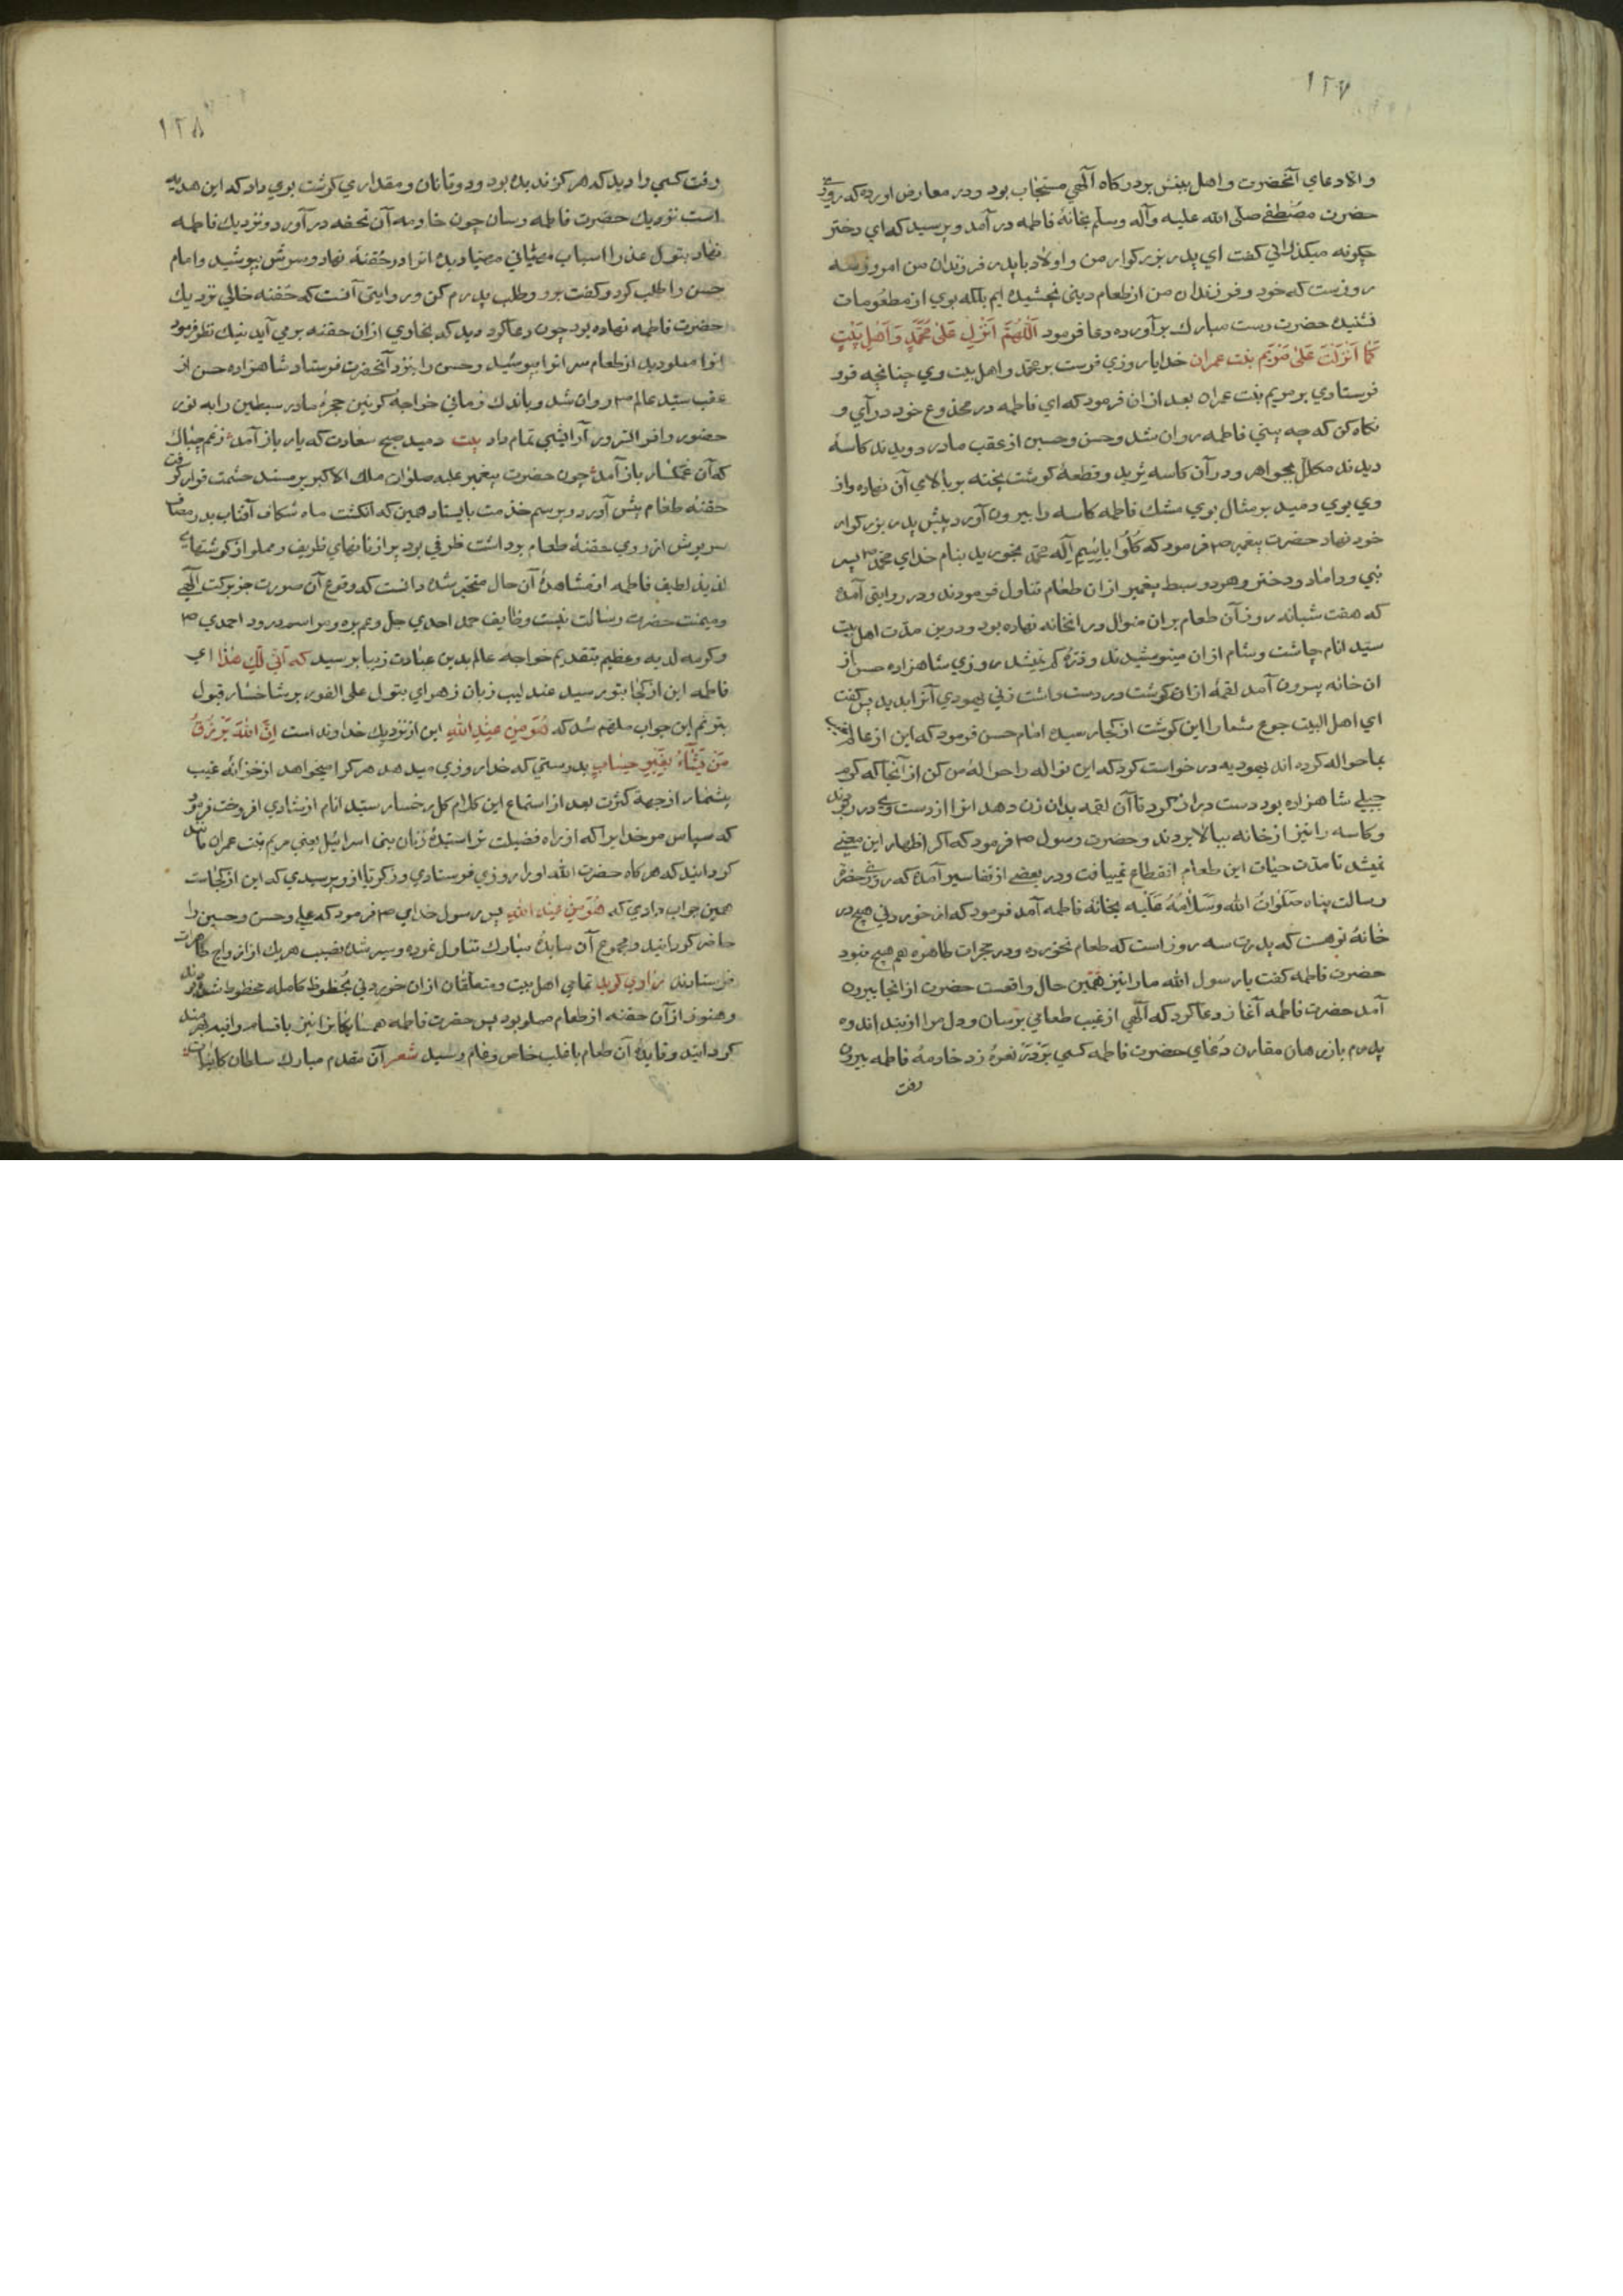 ١٢٧
والا دعای آنحضرت و اهل بیتش بدرکاه آلهی مستجاب بود ودر معارض اورده که روزی
حضرت مصطفی صلی الله علیه وآله وسلم بخانهٔ فاطمه در آمد و پرسید که ای دختر
چکونه میکذرانی کفت ای پدر بزرکوار من و اولاد با پدر فرزندان من امروز سه
روزست که خود و فرزندان من از طعام دینی نچشیده ایم بلکه بوی از مطعومات
نشنیده حضرت دست مبارک برآورده دعا فرمود اَللّهُمَّ اَنْزِل عَلیٰ مُحَمَّدٍ وَاَهْلِ بَیْتٍ
کَمَا اَنْزَلْتَ عَلیٰ مَرْیَم بنت عمران خدایا روزی فرست بر محمد و اهل بیت وی چنانچه فرو
فرستادی بر مریم بنت عمران بعد ازان فرمود که ای فاطمه در مخدوع خود در آی و
نکاه کن که چه بینی فاطمه روان شد وحسن وحسین از عقب مادر دویدند کاسهٔ
دیدند مکلّل بجواهر و در آن کاسه ثرید و قطعهٔ کوشت پخته بر بالای آن نهاده واز
وی بوی دمید بر مثال بوی مشک فاطمه کاسه را بیرون آورد پیش پدر بزرکوار
خود نهاد حضرت پیغمبر ص فرمود که کُلُوا بِاسْمِ اِلٰه محمد بخورید بنام خدای محمد ص پس
نبی وداماد ودختر وهردو سبط پیغمبر ازان طعام تناول فرمودند ودر روایتی آمده
که هفت شبانه روز آن طعام بران منوال درانخانه نهاده بود و درین مدّت اهل بیت
سیّد انام چاشت وشام ازان مینوشیدند و ذرهٔ کم نمیشد روزی شاهزاده حسن از
ان خانه بیرون آمد لقمهٔ ازان کوشت در دست داشت زنی یهودی آنرا بدید پس کفت
ای اهل البیت جوع شما را این کوشت از کجا رسید امام حسن فرمود که این از عالم غیب
بما حواله کرده اند یهودیه درخواست کرد که این نواله را حوالهٔ من کن از آنجا که کرم
جبلی شاهزاده بود دست دراز کرد تا آن لقمه بدان زن دهد انرا از دست وی در ربودند
وکاسه را نیز از خانه ببالا بردند و حضرت رسول ص فرمود که اکر اظهار این معنی
نمیشد تا مدّت حیات این طعام انقطاع نمییافت ودر بعضی از تفاسیر آمده که روزی حضرت
رسالت پناه صَلَوٰاتُ الله وَسَلاٰمُهُ عَلَیْه بخانهٔ فاطمه آمد فرمود که از خوردنی هیچ در
خانهٔ تو هست که پدرت سه روز است که طعام نخورده ودر حجرات طاهره هم هیچ نبود
حضرت فاطمه کفت یا رسول الله ما را نیز همین حال واقعست حضرت از انجا بیرون
آمد حضرت فاطمه آغاز دعا کرد که آلهی از غیب طعامی برسان ودل مرا از بند اندوه
پدرم باز رهان مقارن دعای حضرت فاطمه کسی بر در نعرهٔ زد خادمهٔ فاطمه بیرون
رفت
١٢٨
رفت کسی را دید که هرکز ندیده بود ودوتا نان و مقداری کوشت بوی داد که این هدیه
است نزدیک حضرت فاطمه رسان چون خادمه آن تحفه در آورد و نزدیک فاطمه
نهاد بتول عذرا اسباب مهیّا دیده انرا در حُقنهٔ نهاد و سرش بپوشید وامام
حسن را طلب کرد و کفت برو وطلب پدرم کن ودر روایتی آنست که حُقنه خالی نزدیک
حضرت فاطمه نهاده بود چون دعا کرد دید که بخاری ازان حقنه برمی آید نیک نظر فرمود
انرا مملو دید از طعام سر انرا بپوشید وحسن را بنزد آنحضرت فرستاد شاهزاده حسن از
عقب سیّد عالم ص روان شد و باندک زمانی خواجهٔ کونین حجرهٔ مادر سبطین را به نور
حضور وافر السّرور آرایشی تمام داد بیت دمید صبح سعادت که یار باز آمد
که آن غمکسار باز آمد چون حضرت پیغمبر علیه صلوات ملک الاکبر بر مسند حشمت قرار کرفت
حقنهٔ طعام پیش آورد و برسم خدمت بایستاد همین که انکشت ماه شکاف آفتاب
سرپوش از روی حقنهٔ طعام برداشت ظرفی بود پر از نانهای ظریف ومملو از کوشتهای
لذیذ لطیف فاطمه از مشاهدهٔ آن حال متحیر شده دانست که وقوع آن صورت جز برکت آلهی
ومیمنت حضرت رسالت نیست وظایف حمد احدی جل وعم بره ومراسم درود احمدی ص
وکرمه لدیه وعظیم بتقدیم خواجه عالم بدین عبادت زیبا پرسید که اَنّیٰ لَکِ هٰذا ای
فاطمه این از کجا بتو رسید عندلیب زبان زهرای بتول علی الفور بر شاخسار قبول
بترنم این جواب ملهم شد که هُوَ مِنْ عِنْدِ اللهِ این از نزدیک خداوند است اِنَّ اللهَ یَرْزُقُ
مَنْ یَشٰآءُ بِغَیْرِ حِسٰابٍ بدرستی که خدا روزی میدهد هرکرا میخواهد از خزانهٔ غیب
بیشمار از جهة کثرت بعد از استماع این کلام کل رخسار سیّد انام از شادی افروخت فرمود
که سپاس مر خدایرا که از راه فضیلت ترا سیدهٔ زنان بنی اسرائیل یعنی مریم بنت عمران مانند
کردانید که هرکاه حضرت الله او را روزی فرستادی و زکریا ازو پرسیدی که این از کجاست
همین جواب دادی که هُوَ مِنْ عِنْدِ اللهِ پس رسول خدای ص فرمود که علی وحسن وحسین را
حاضر کردانید و مجموع آن مایدهٔ مبارک تناول نموده و سیر شده نصیب هریک از ازواج طاهرات
فرستادند راوی کوید تمامی اهل بیت ومتعلّقان ازان خوردنی بُحظوظ کامله محظوظ شدند
وهنوز ازآن حقنه از طعام مملو بود پس حضرت فاطمه همسایکانرا نیز
کردانید وفایدهٔ آن طعام باغلب خاص وعام رسید شعر آن مقدم مبارک سلطان کاینات